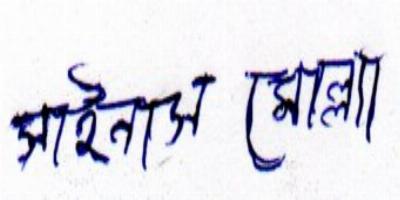 সাইনাস মোল্লা